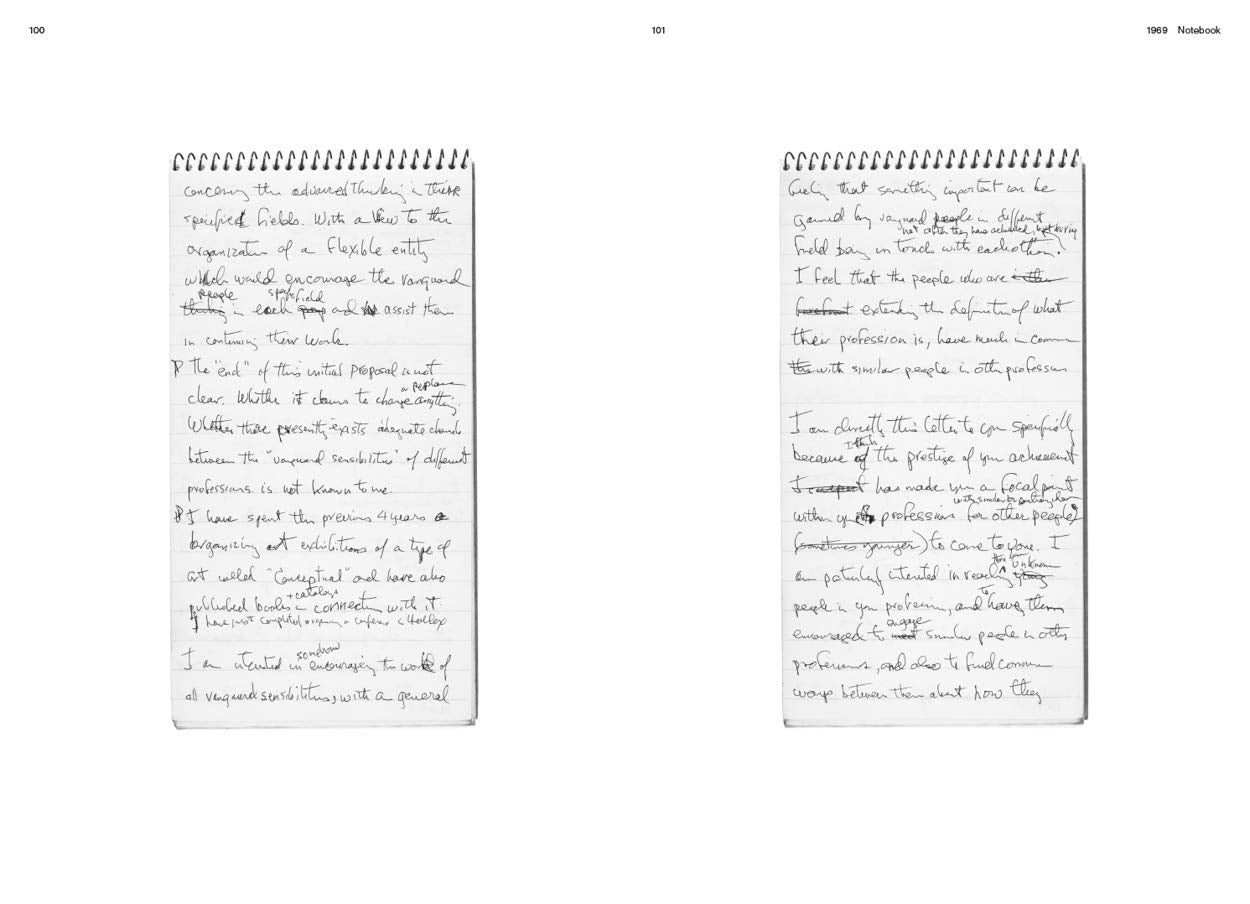 100
concerning the advanced thinking in these
specified fields. With a view to the
organization of a flexible entity
which would encourage the vanguard
people specific field
thinking in each group and assist them
in continuing their work.
The "end" of this initial proposal is not
or replace
clear. Whether it claims to change anything.
Whether there presently exists adequate channels
between the "vanguard sensibilities" of different
professions. is not known to me.
I have spent the previous 4 years
organizing art exhibitions of a type of
art called "Conceptual" and have also
+ catalogs
published books in connection with it.
I have just completed organizing a conference in Halifax
somehow
I am interested in encouraging the work of
all vanguard sensibilities, with a general
101
1969 Notebook
feeling that something important can be
gained by vanguard people in different
not after they have achieved, but during
field being in touch with each other.
I feel that the people who are in the
forefront extending the definition of what
their profession is, have much in common
the with similar people in other professions
I am directing this letter to you specifically
I think
because of the prestige of your achievement
I has made you a focal point
with similar
within your profession for other people
(sometimes younger) to come to you. I
unknown
am particularly interested in reaching young
to
people in your profession, and have them
engage
encouraged to meet similar people in other
professions, and also to find common
ways between them about how they